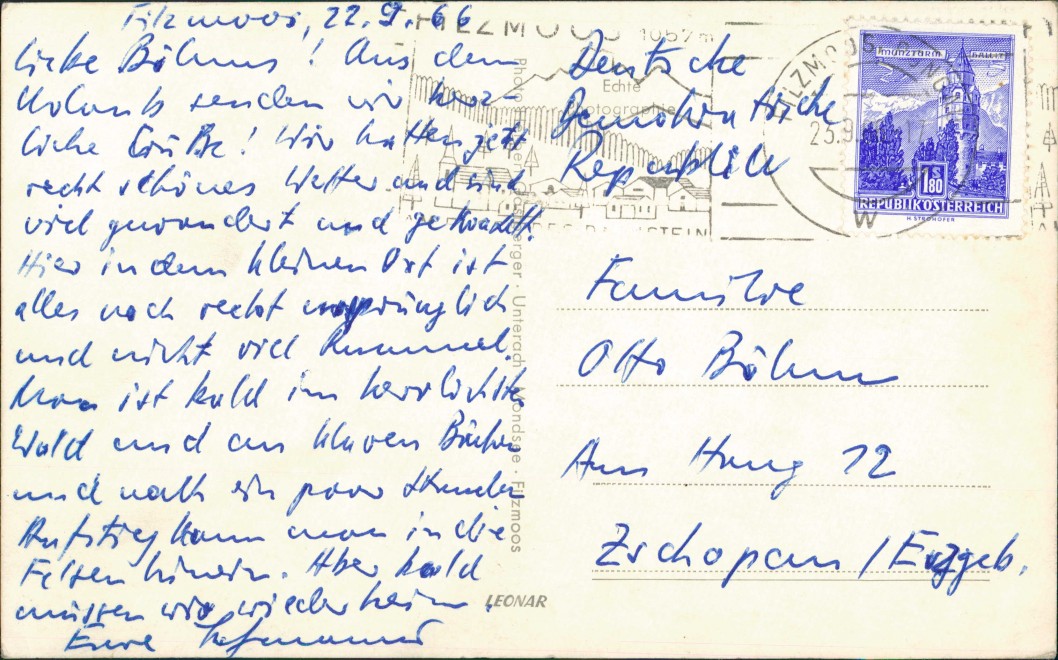 Filzmoos, 22.9.66
Liebe Böhms! Aus dem
Urlaub senden wir herz-
liche Grüße! Wir hatten jetzt
recht schönes Wetter und sind
viel gewandert und gekraxelt.
Hier in dem kleinen Ort ist
alles noch recht ursprünglich
und nicht viel Rummel.
Man ist bald im herrlichsten
Wald und an klaren Bächen
und nach ein paar Stunden
Aufstieg kann man in die
Felsen hinein. Aber bald
müssen wir wieder heim.
Eure
Deutsche
Demokratische
Republik
Familie
Otto Böhm
Am Hang 12
Zschopau / Erzgeb.
FILZMOOS 1057 m
FILZMOOS
23.9.
W
MÜNZTURM HALL I.T.
1 S 80
REPUBLIK ÖSTERREICH
H. STROHOFER
Echte
Photographie
Unterach · Mondsee · Filzmoos
LEONAR